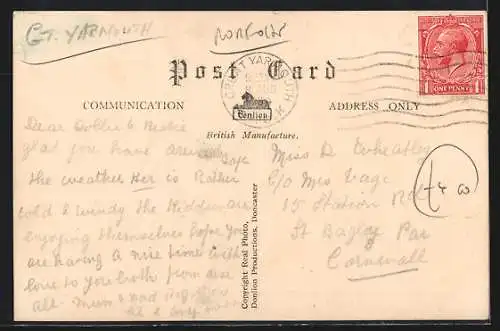 GT. YARMOUTH
NORFOLK
Post Card
GREAT YARMOUTH
COMMUNICATION
Donlion
ADDRESS ONLY
ONE PENNY
British Manufacture.
Dear Dollie &
glad you have arrived
safe
the weather Her is Rather
cold & windy the Kiddies are
enjoying themselves hope you
are having a nice time with
love to you both from
all. Mum & Dad
Copyright Real Photo,
Donlion Productions, Doncaster
Miss D Wheatley
C/o Mrs Page
15 Station Rd
St Par
Cornwall
£4.00